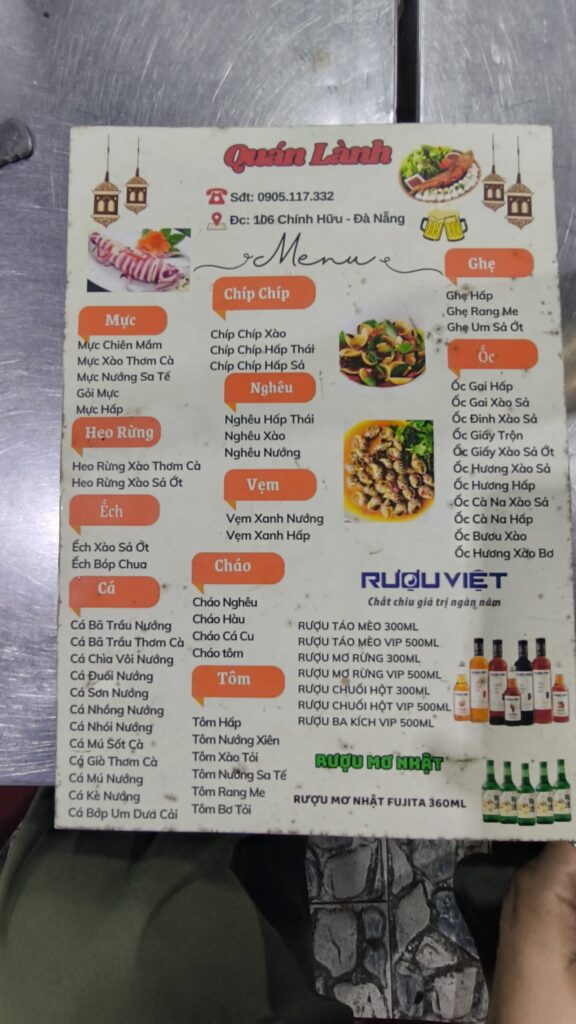 Quán Lành
Sđt: 0905.117.332
Đc: 106 Chính Hữu - Đà Nẵng
Menu
Mực
Mực Chiên Mắm
Mực Xào Thơm Cà
Mực Nướng Sa Tế
Gỏi Mực
Mực Hấp
Heo Rừng
Heo Rừng Xào Thơm Cà
Heo Rừng Xào Sả Ớt
Ếch
Ếch Xào Sả Ớt
Ếch Bóp Chua
Cá
Cá Bã Trầu Nướng
Cá Bã Trầu Thơm Cà
Cá Chìa Vôi Nướng
Cá Đuối Nướng
Cá Sơn Nướng
Cá Nhồng Nướng
Cá Nhói Nướng
Cá Mú Sốt Cà
Cá Giò Thơm Cà
Cá Mú Nướng
Cá Kè Nướng
Cá Bớp Um Dưa Cải
Chíp Chíp
Chíp Chíp Xào
Chíp Chíp Hấp Thái
Chíp Chíp Hấp Sả
Nghêu
Nghêu Hấp Thái
Nghêu Xào
Nghêu Nướng
Vẹm
Vẹm Xanh Nướng
Vẹm Xanh Hấp
Cháo
Cháo Nghêu
Cháo Hàu
Cháo Cá Cu
Cháo tôm
Tôm
Tôm Hấp
Tôm Nướng Xiên
Tôm Xào Tỏi
Tôm Nướng Sa Tế
Tôm Rang Me
Tôm Bơ Tỏi
Ghẹ
Ghẹ Hấp
Ghẹ Rang Me
Ghẹ Um Sả Ớt
Ốc
Ốc Gai Hấp
Ốc Gai Xào Sả
Ốc Đinh Xào Sả
Ốc Giấy Trộn
Ốc Giấy Xào Sả Ớt
Ốc Hương Xào Sả
Ốc Hương Hấp
Ốc Cà Na Xào Sả
Ốc Cà Na Hấp
Ốc Bươu Xào
Ốc Hương Xào Bơ
RƯỢU VIỆT
Chắt chiu giá trị ngàn năm
RƯỢU TÁO MÈO 300ML
RƯỢU TÁO MÈO VIP 500ML
RƯỢU MƠ RỪNG 300ML
RƯỢU MƠ RỪNG VIP 500ML
RƯỢU CHUỐI HỘT 300ML
RƯỢU CHUỐI HỘT VIP 500ML
RƯỢU BA KÍCH VIP 500ML
RƯỢU MƠ NHẬT
RƯỢU MƠ NHẬT FUJITA 360ML